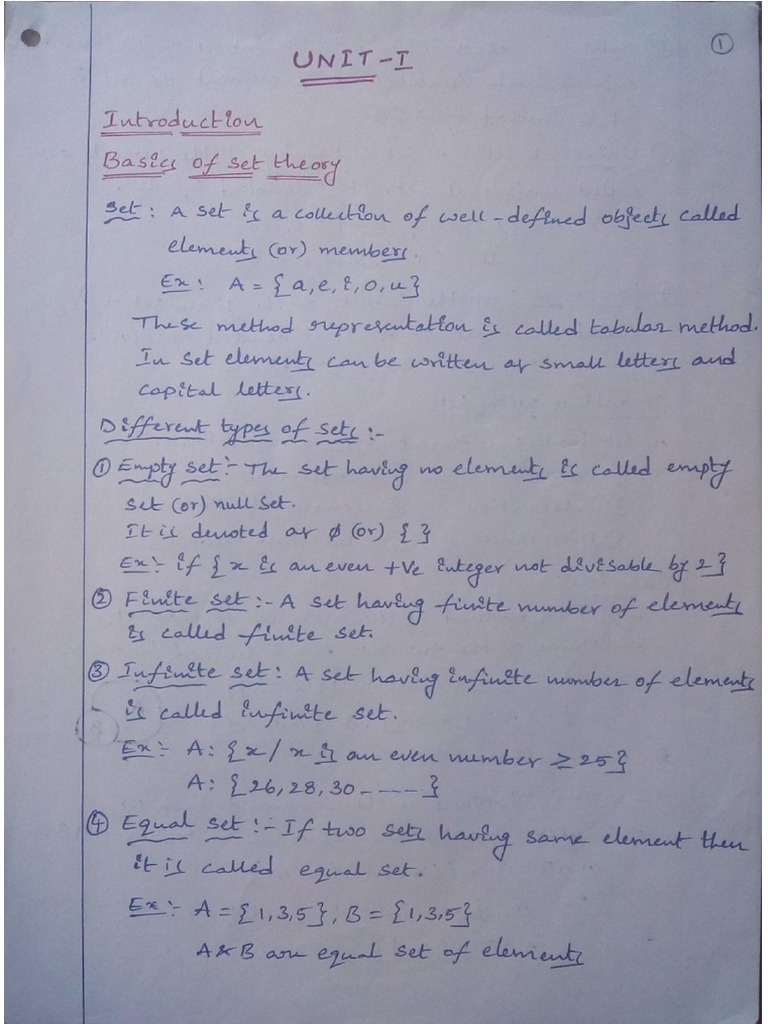 ①
UNIT-I
Introduction
Basics of set theory
Set : A set is a collection of well-defined objects called
elements (or) members.
Ex : A = {a,e,i,o,u}
These method representation is called tabular method.
In set elements can be written as small letters and
capital letters.
Different types of sets :-
① Empty set :- The set having no elements is called empty
set (or) null set.
It is denoted as ϕ (or) { }
Ex :- if { x is an even +ve integer not divisable by 2}
② Finite set :- A set having finite number of elements
is called finite set.
③ Infinite set : A set having infinite number of elements
is called infinite set.
Ex :- A: {x/x is an even number ≥ 25}
A: {26,28,30-----}
④ Equal set :- If two sets having same element then
it is called equal set.
Ex :- A = {1,3,5}, B = {1,3,5}
A & B are equal set of elements